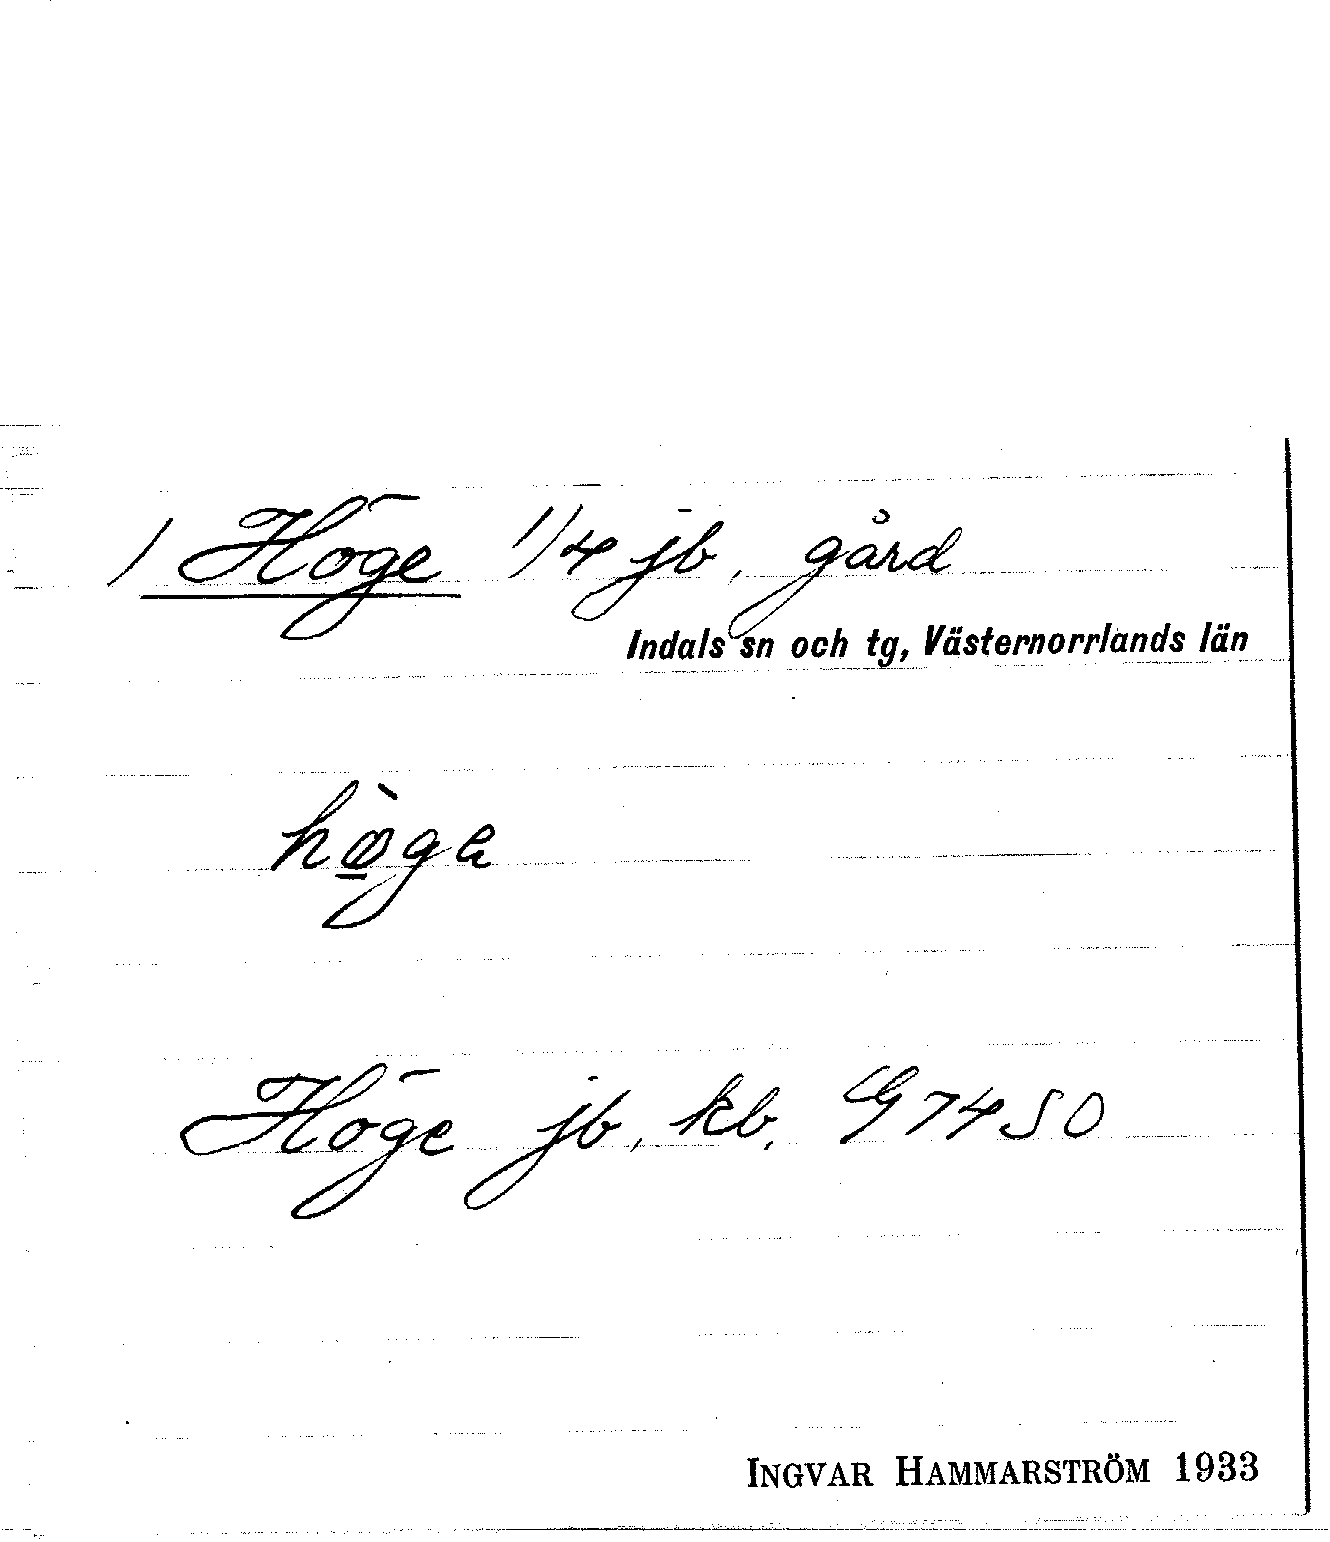 1 Höge 1/4 jb, gård
Indals sn och tg, Västernorrlands län
hø̀ga
Höge jb, kb, G7450
INGVAR HAMMARSTRÖM 1933